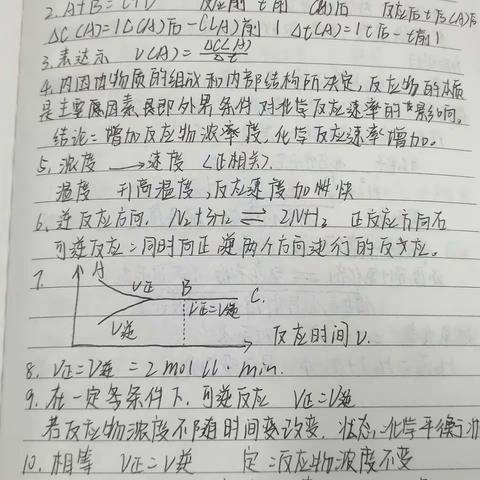 2. A+B=C+D 反应前t前 C(A)后 反应后t后C(A)后
ΔC(A)=|C(A)后-C(A)前| Δt(A)=|t后-t前|
3. 表达示 V(A)=ΔC(A)/Δt
4. 内因由物质的组成和内部结构所决定,反应物的本质
是主要原因素 外界条件对化学反应速率的影响。
结论:增加反应物浓率度,化学反应速率增加。
5. 浓度 → 速度 (正相关)
温度 升高温度,反应速度加快
6. 逆反应方向. N2+3H2 ⇌ 2NH3 正反应方向右
可逆反应:同时向正逆两个方向进行的反应。
7.
A
V正
B
C.
V正=V逆
V逆
反应时间 V.
8. V正=V逆=2mol/L·min.
9. 在一定条件下,可逆反应 V正=V逆
若反应物浓度不随时间变改变. 状态,化学平衡
10. 相等 V正=V逆 定:反应物浓度不变